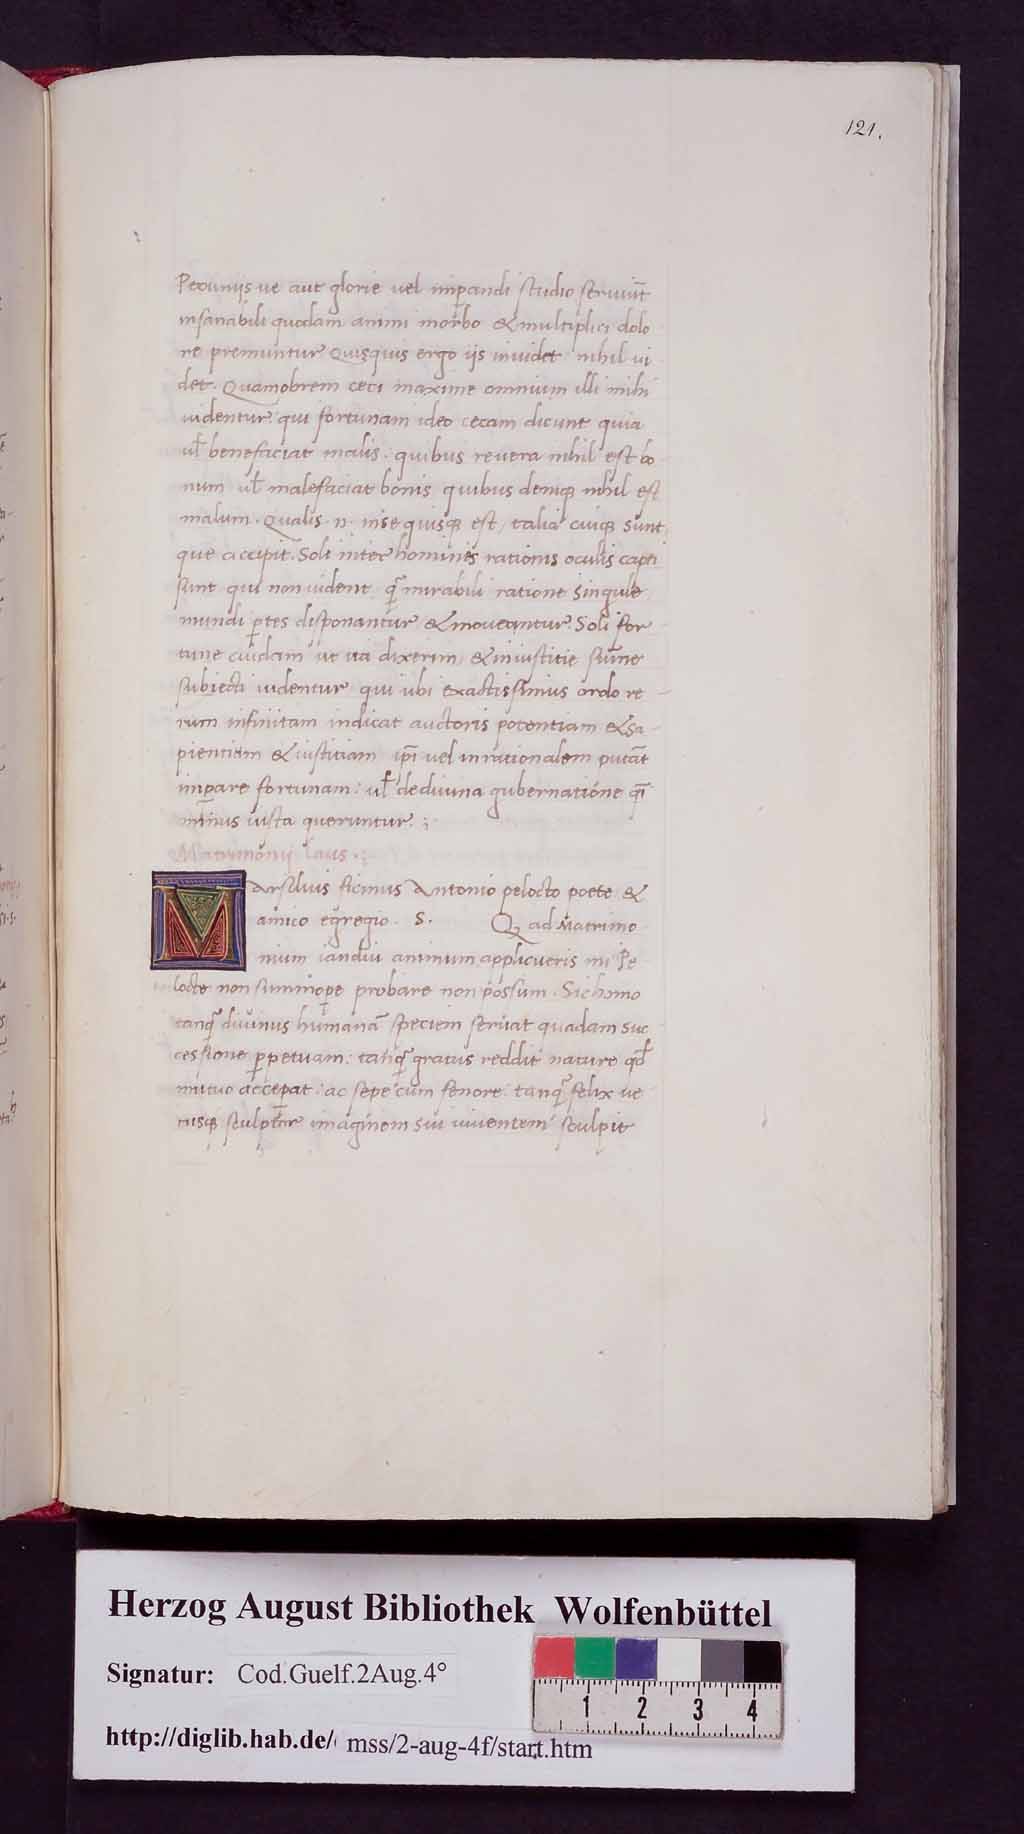 121.
Pecuniis ve aut glorie vel imꝑandi studio serviūt
insanabili quodam animi morbo & multiplici dolo
re premuntur. Quisquis ergo iis invidet nihil vi
det. Quamobrem ceci maxime omnium illi mihi
videntur qui fortunam ideo cecam dicunt quia
vl̄ benefaciat malis. quibus revera nihil est bo
num vl̄ malefaciat bonis quibus deniqȝ nihil est
malum. Qualis .n. in se quisqȝ est, talia cuiqȝ sunt
que accipit. Soli inter homines rationis oculis capti
sunt qui non vident q̄ mirabili ratione singule
mundi ꝑtes disponantur & moveantur. Soli for
tune cuidam ut ita dixerim, & iniustitie sūme
subiecti videntur qui ubi exactissimus ordo re
rum infinitam indicat auctoris potentiam & sa
pientiam & iustitiam ip̄i vel inrationalem putāt
imꝑare fortunam: vl̄ de divina gubernatione q̄i
minus iusta queruntur.;
Matrimonij laus.;
Marsilius ficinus Antonio pelocto poete &
amico egregio. S. Qȝ ad Matrimo
nium iandiu animum applicueris mi Pe
locte non summoꝑe probare non possum. Sic homo
tanq̄ divinus humanā speciem servat quadam suc
cessione ꝑpetuam: tanq̄ gratus reddit nature qđ
mutuo acceꝑat: ac sepe cum fenore: tanq̄ felix ve
rusqȝ sculptor imaginem sui viventem sculpit
Herzog August Bibliothek Wolfenbüttel
Signatur: Cod.Guelf.2Aug.4°
1 2 3 4
http://diglib.hab.de/ mss/2-aug-4f/start.htm